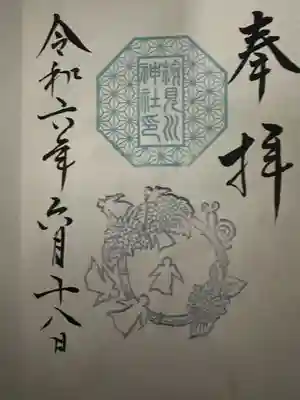 奉拝
検見川神社印
令和六年六月十八日